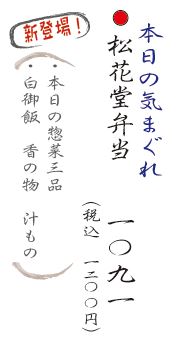 本日の気まぐれ
●松花堂弁当 一〇九一
(税込 一二〇〇円)
新登場!
・本日の惣菜三品
・白御飯 香の物 汁もの